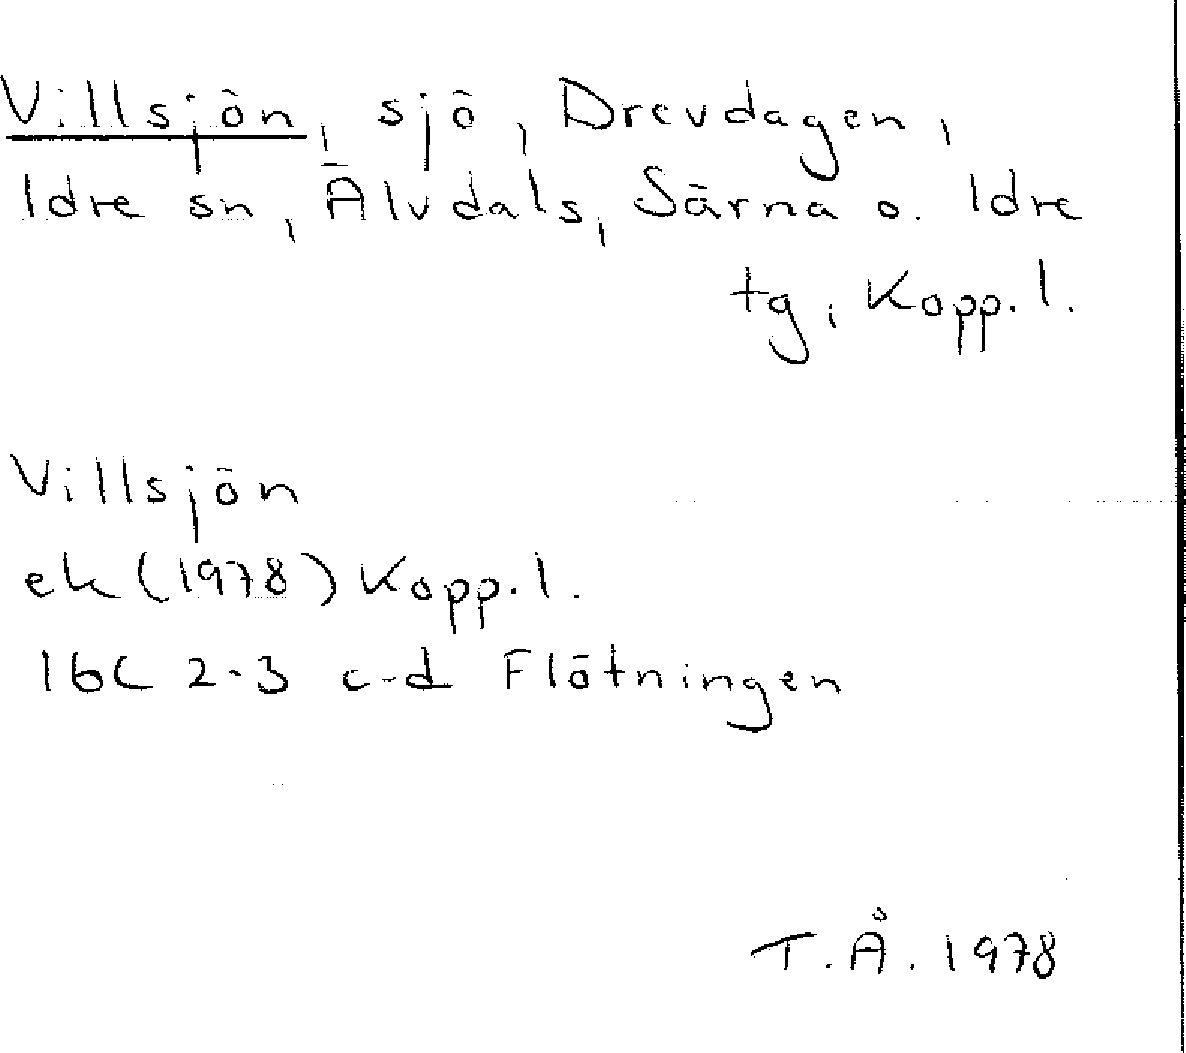 Villsjön, sjö, Drevdagen,
Idre sn, Älvdals, Särna o. Idre
tg, Kopp. l.
Villsjön
ek (1978) Kopp. l.
16C 2-3 c-d Flötningen
T. Å. 1978